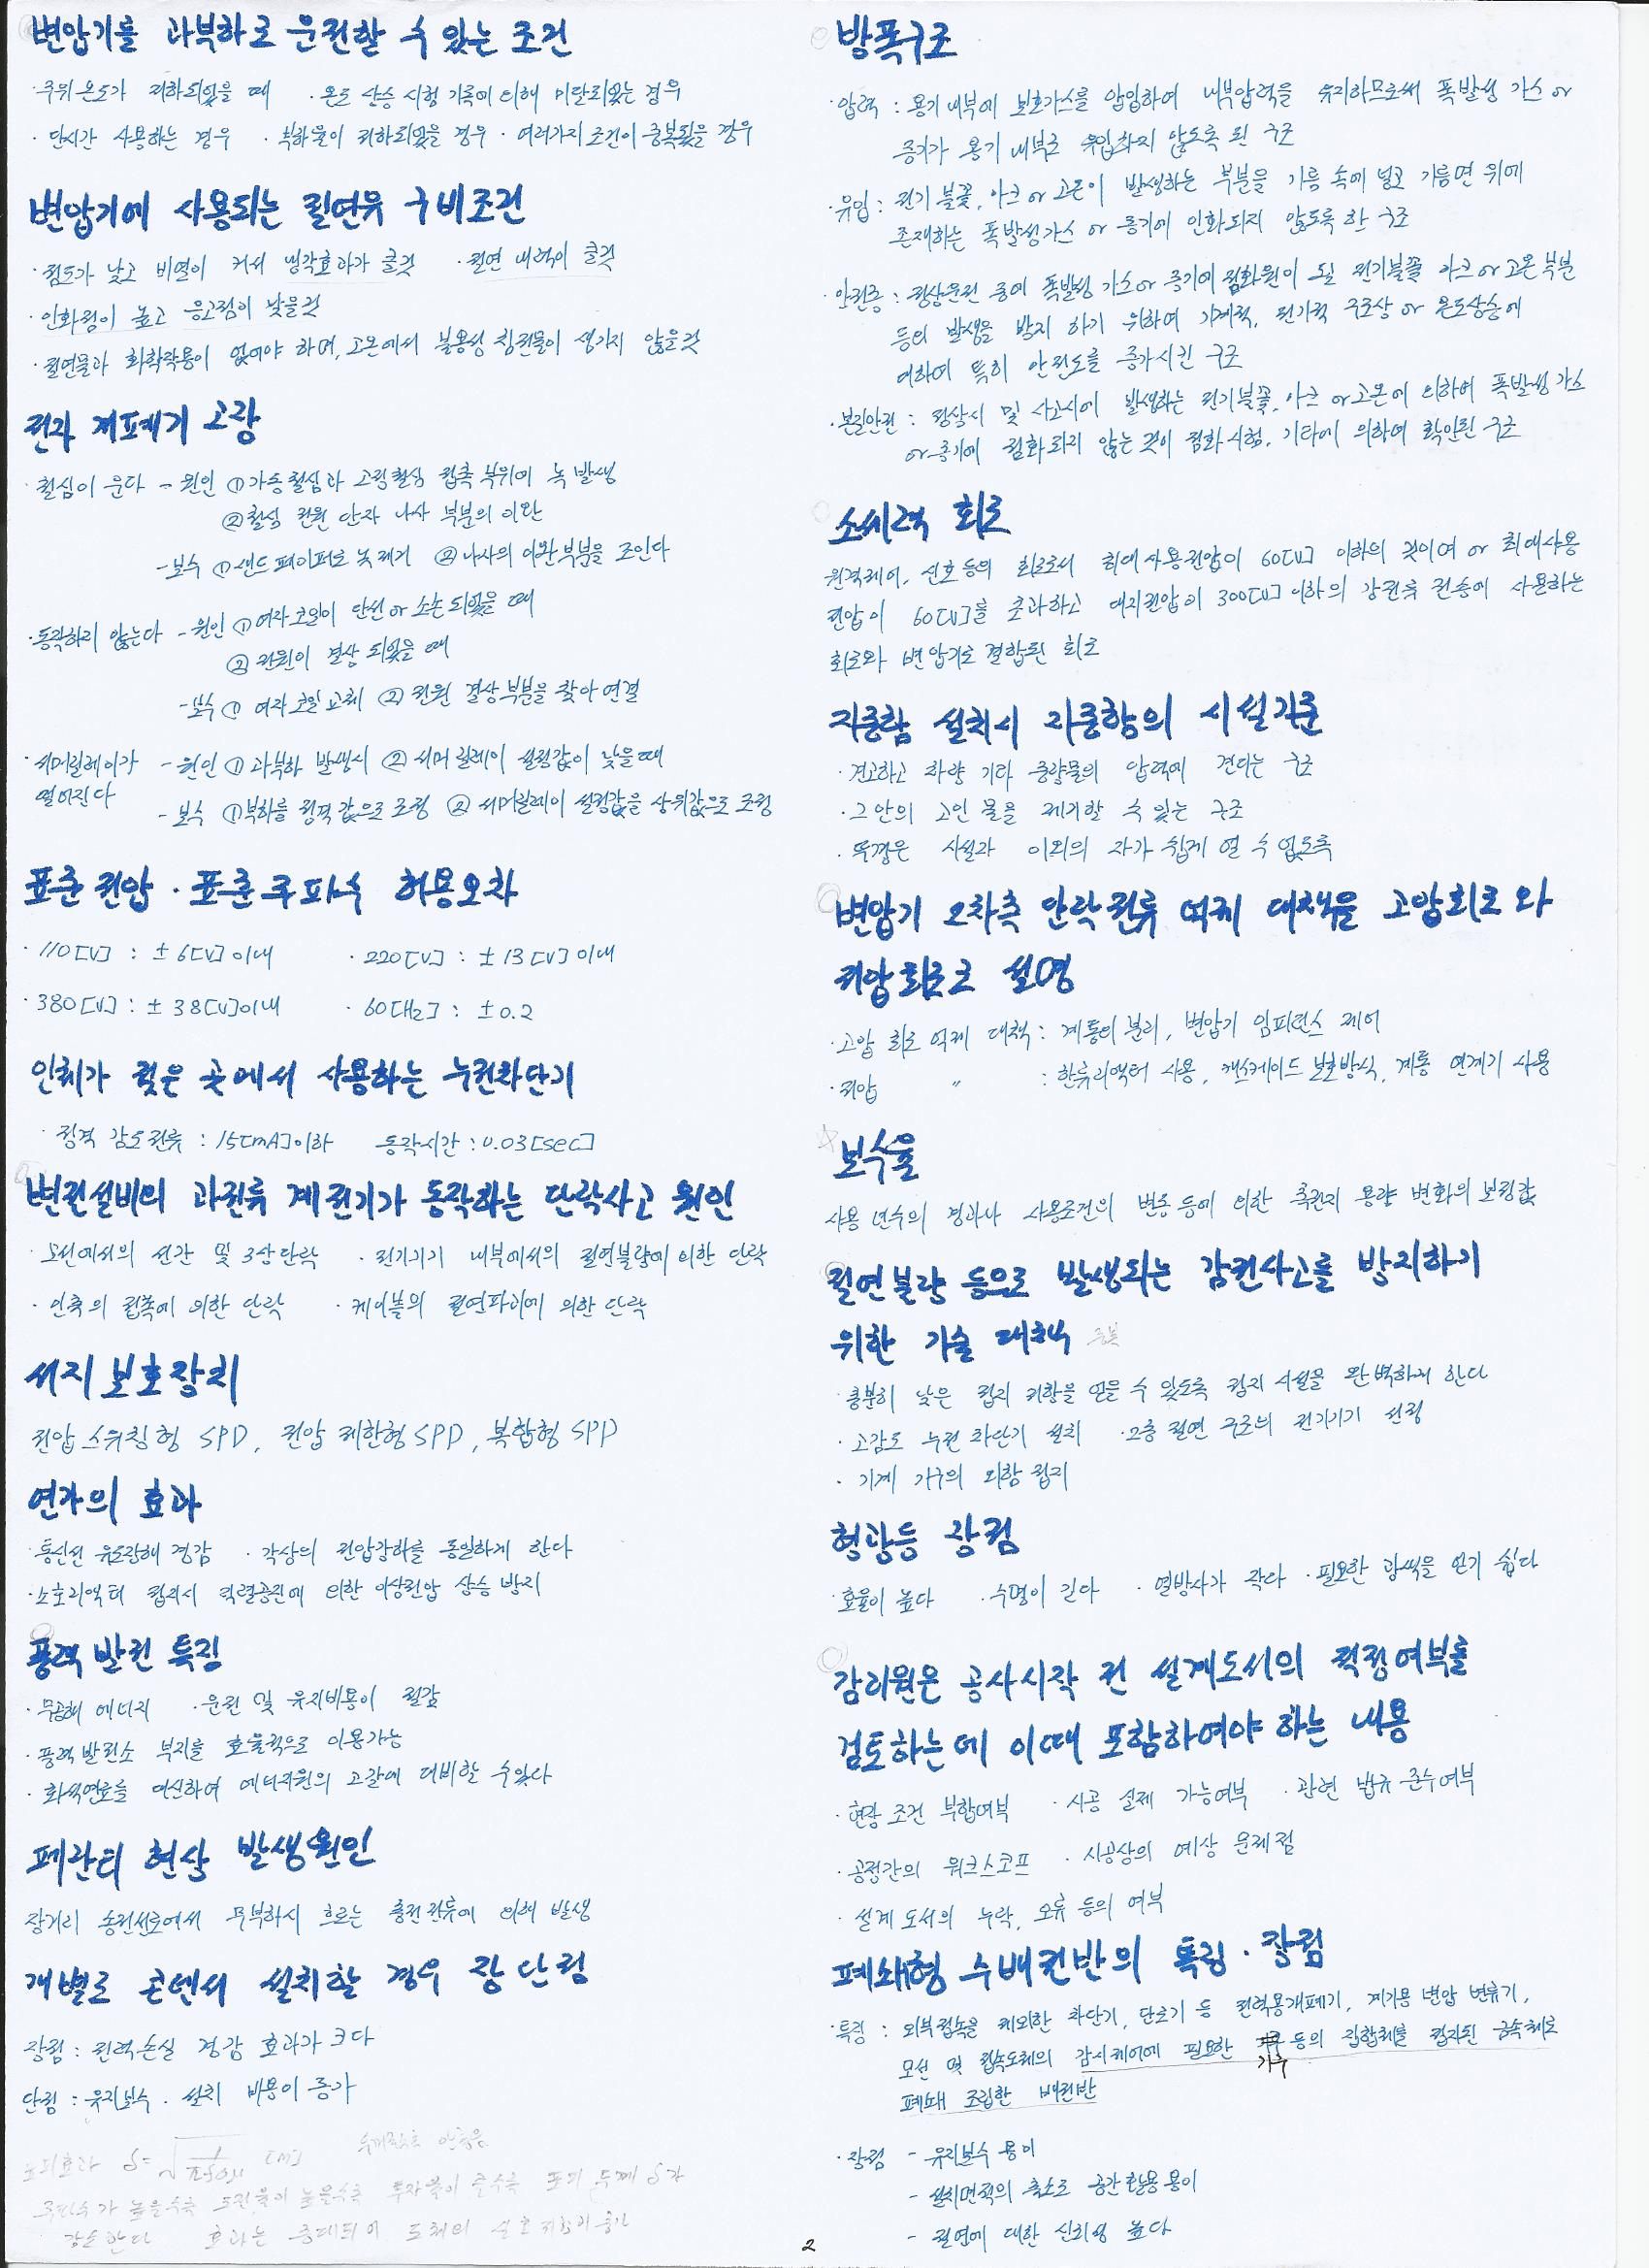 변압기를 과부하로 운전할 수 있는 조건
· 주위온도가 저하되었을 때 · 온도 상승 시험 기록에 의해 미달되있는 경우
· 단시간 사용하는 경우 · 부하율이 저하되었을 경우 · 여러가지 조건이 중복됬을 경우
변압기에 사용되는 절연유 구비조건
· 점도가 낮고 비열이 커서 냉각효과가 클것 · 절연 내력이 클것
· 인화점이 높고 응고점이 낮을것
· 절연물과 화학작용이 없어야 하며, 고온에서 불용성 침전물이 생기지 않을것
전자 개폐기 고장
· 철심이 운다 - 원인 ① 가동철심과 고정철심 접촉 부위에 녹 발생
② 철심 전원 단자 나사 부분의 이완
- 보수 ① 샌드페이퍼로 녹 제거 ② 나사의 이완부분을 조인다
· 동작하지 않는다 - 원인 ① 여자코일이 단선 or 소손되었을 때
② 전원이 결상 되었을 때
- 보수 ① 여자코일 교체 ② 전원 결상부분을 찾아 연결
· 서머릴레이가 - 원인 ① 과부하 발생시 ② 서머릴레이 설정값이 낮을때
떨어진다 - 보수 ① 부하를 정격값으로 조정 ② 서머릴레이 설정값을 상위값으로 조정
표준전압 · 표준주파수 허용오차
· 110[V] : ± 6[V]이내 · 220[V] : ± 13[V]이내
· 380[V] : ± 38[V]이내 · 60[Hz] : ± 0.2
인체가 젖은 곳에서 사용하는 누전차단기
· 정격 감도전류 : 15[mA]이하 동작시간 : 0.03[sec]
변전설비의 과전류 계전기가 동작하는 단락사고 원인
· 모선에서의 선간 및 3상단락 · 전기기기 내부에서의 절연불량에 의한 단락
· 인축의 접촉에 의한 단락 · 케이블의 절연파괴에 의한 단락
서지 보호장치
전압스위칭형 SPD, 전압제한형SPD, 복합형 SPD
연가의 효과
· 통신선 유도장해 경감 · 각상의 전압강하를 동일하게 한다
· 소호리액터 접지시 직렬공진에 의한 이상전압 상승 방지
풍력 발전 특징
· 무공해 에너지 · 운전 및 유지비용이 절감
· 풍력발전소 부지를 효율적으로 이용가능
· 화석연료를 대신하여 에너지원의 고갈에 대비할 수있다
페란티 현상 발생원인
장거리 송전선로에서 무부하시 흐르는 충전전류에 의해 발생
개별로 콘덴서 설치할 경우 장 단점
장점 : 전력손실 경감 효과가 크다
단점 : 유지보수 · 설치 비용이 증가
표피효과 δ=√1/πfσμ [m]
주파수가 높을수록 도전율이 높을수록 투자율이 클수록 표피 두께 δ가
감소한다 효과는 증대되어 도체의 실효저항이 증가
방폭구조
· 압력 : 용기내부에 보호가스를 압입하여 내부압력을 유지하므로써 폭발성 가스 or
증기가 용기 내부로 유입하지 않도록 된 구조
· 유입 : 전기불꽃, 아크 or 고온이 발생하는 부분을 기름 속에 넣고 기름면 위에
존재하는 폭발성가스 or 증기에 인화되지 않도록 한 구조
· 안전증 : 정상운전 중에 폭발성 가스or 증기에 점화원이 될 전기불꽃 아크 or 고온부분
등의 발생을 방지 하기 위하여 기계적, 전기적 구조상 or 온도상승에
대하여 특히 안전도를 증가시킨 구조
· 본질안전 : 정상시 및 사고시에 발생하는 전기불꽃, 아크 or 고온에 의하여 폭발성 가스
or 증기에 점화되지 않는 것이 점화시험, 기타에 의하여 확인된 구조
소세력 회로
원격제어, 신호등의 회로로서 최대사용전압이 60[V] 이하의 것이며 or 최대사용
전압이 60[V]를 초과하고 대지전압이 300[V]이하의 강전류 전송에 사용하는
회로와 변압기로 결합된 회로
지중함 설치시 지중함의 시설기준
· 견고하고 차량 기타 중량물의 압력에 견디는 구조
· 그 안의 고인 물을 제거할 수 있는 구조
· 뚜껑은 시설자 이외의 자가 쉽게 열 수 없도록
변압기 2차측 단락전류 억제 대책을 고압회로와
저압회로로 설명
· 고압 회로 억제 대책 : 계통의 분리, 변압기 임피던스 제어
· 저압 〃 : 한류리액터 사용, 캐스케이드 보호방식, 계통 연계기 사용
보수율
사용 년수의 경과나 사용조건의 변동 등에 의한 축전지 용량 변화의 보정값
절연불량 등으로 발생되는 감전사고를 방지하기
위한 기술 대책 중복
· 충분히 낮은 접지 저항을 얻을 수 있도록 접지 시설을 완벽하게 한다
· 고감도 누전 차단기 설치 · 2중 절연 구조의 전기기기 선정
· 기계 기구의 외함 접지
형광등 장점
· 효율이 높다 · 수명이 길다 · 열방사가 작다 · 필요한 광색을 얻기 쉽다
감리원은 공사시작 전 설계도서의 적정여부를
검토하는데 이때 포함하여야 하는 내용
· 현장 조건 부합여부 · 시공 실제 가능여부 · 관련 법규 준수여부
· 공정간의 워크스코프 · 시공상의 예상 문제점
· 설계 도서의 누락, 오류 등의 여부
폐쇄형 수배전반의 특징 · 장점
· 특징 : 외부접속을 제외한 차단기, 단로기 등 전력용개폐기, 계기용 변압 변류기,
모선 및 접속도체의 감시제어에 필요한 기구 등의 집합체를 접지된 금속체로
폐쇄 조립한 배전반
· 장점 - 유지보수 용이
- 설치면적의 축소로 공간활용 용이
- 절연에 대한 신뢰성 높다
2